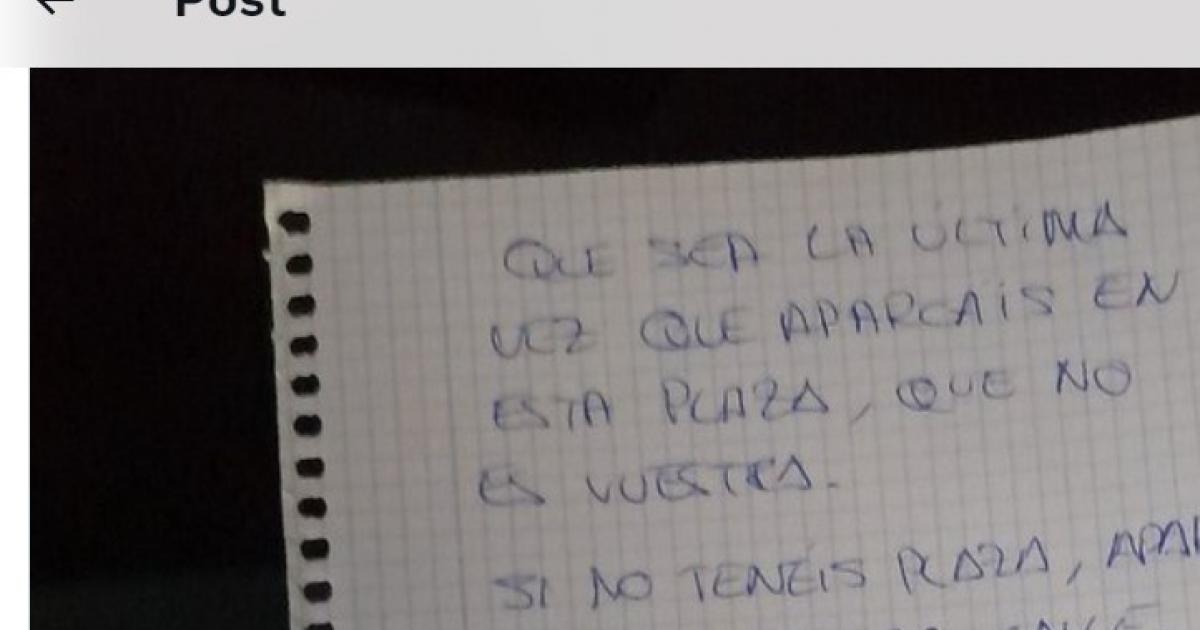 Post
QUE SEA LA ÚLTIMA
VEZ QUE APARCAIS EN
ESTA PLAZA, QUE NO
ES VUESTRA.
SI NO TENEIS PLAZA,